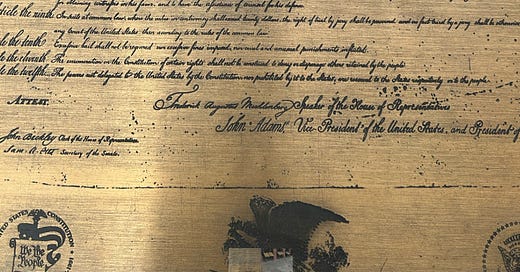 for obtaining witnesses in his favor, and to have the assistance of counsel for his defence.
ticle the ninth. In suits at common law, where the value in controversy shall exceed twenty dollars, the right of trial by jury shall be preserved, and no fact tried by a jury, shall be otherwise
any court of the United States, than according to the rules of the common law.
le the tenth. Excessive bail shall not be required, nor excessive fines imposed, nor cruel and unusual punishments inflicted.
le the eleventh. The enumeration in the Constitution of certain rights shall not be construed to deny or disparage others retained by the people.
le the twelfth. The powers not delegated to the United States by the Constitution, nor prohibited by it to the States, are reserved to the States respectively, or to the people.
ATTEST,
Frederick Augustus Muhlenberg Speaker of the House of Representatives
John Adams, Vice-President of the United States, and President of
John Beckley, Clerk of the House of Representatives.
Sam. A. Otis Secretary of the Senate.
UNITED STATES CONSTITUTION
We the
People